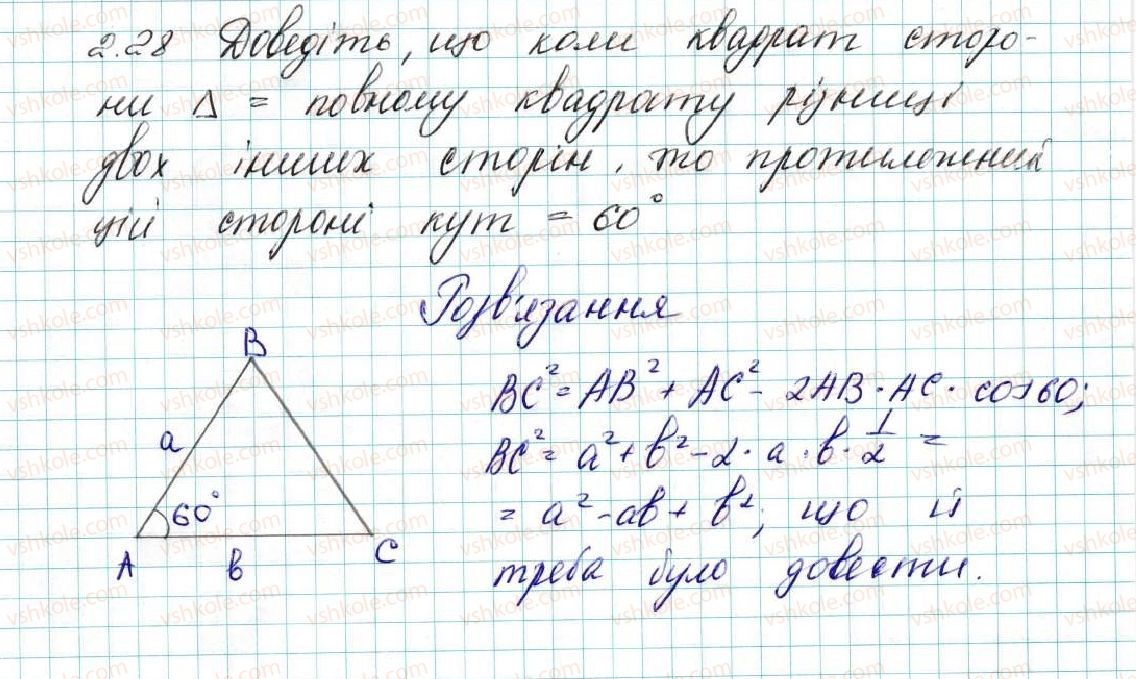 2.28 Доведіть, що коли квадрат сторо-
ни Δ = повному квадрату різниці
двох інших сторін, то протилежний
цій стороні кут = 60°
Розв'язання
B
a
60°
A
в
C
BC² = AB² + AC² - 2AB · AC · cos60;
BC² = a² + в² - 2 · a · в · 1/2 =
= a² - aв + в², що й
треба було довести.